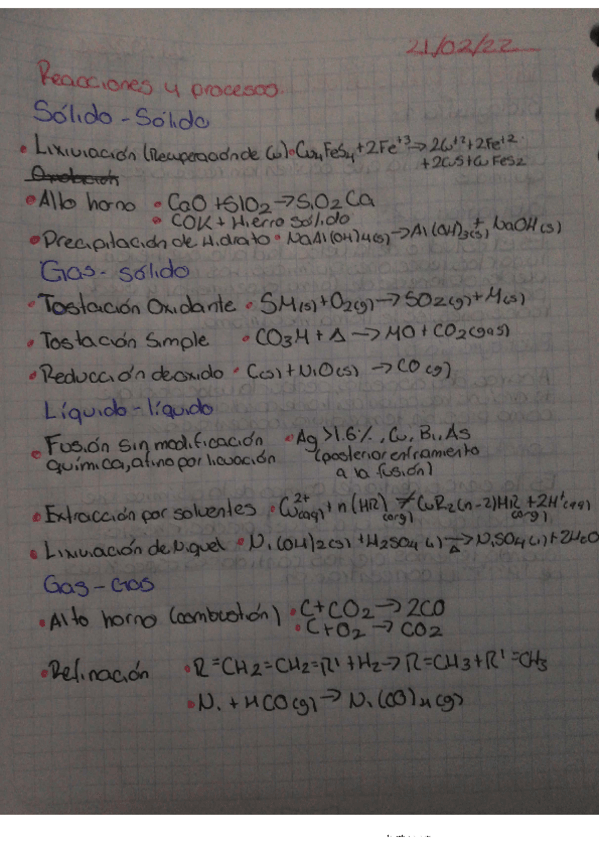 21/02/22
Reacciones y procesos.
Sólido - Sólido
• Lixiviación (Recuperación de Cu) • Cu4FeS4 + 2Fe+3 → 2Cu+2 + 2Fe+2
+ 2CuS + CuFeS2
• Alto horno • CaO + SiO2 → SiO2Ca
• COK + Hierro Sólido
• Precipitación de Hidrato • NaAl(OH)4(s) → Al(OH)3(s) + NaOH(s)
Gas - sólido
• Tostación Oxidante • SM(s) + O2(g) → SO2(g) + M(s)
• Tostación Simple • CO3M + Δ → MO + CO2(gas)
• Reducción de oxido • C(s) + NiO(s) → CO(g)
Líquido - líquido
• Fusión Sin modificación • Ag >1.6%, Cu, Bi, As
química, afino por licuación (posterior enfriamiento
a la fusión)
• Extracción por solventes • Cu2+(aq) + n(HR)(org) ⇌ CuR2(n-2)HR(org) + 2H+(aq)
• Lixiviación de Niquel • Ni(OH)2(s) + H2SO4(l) →Δ NiSO4(l) + 2H2O
Gas - Gas
• Alto horno (combustión) • C + CO2 → 2CO
• C + O2 → CO2
• Refinación • R=CH2=CH2=R' + H2 → R=CH3 + R'=CH3
• Ni + 4CO(g) → Ni(CO)4(g)